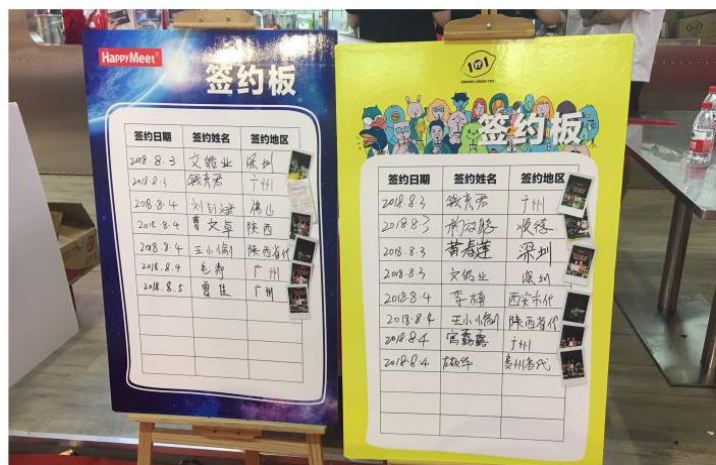 HAPPYMEET®
签约板
签约日期 签约姓名 签约地区
2018.8.3 文皓业 深圳
2018.8.3 钱亮君 广州
2018.8.4 刘钊斌 佛山
2018.8.4 曹文卓 陕西
2018.8.4 王小俐 陕西省代
2018.8.4 毛 广州
2018.8.5 曹佳 广州
1 1
签约板
签约日期 签约姓名 签约地区
2018.8.3 钱亮君 广州
2018.8.3 顺德
2018.8.3 黄春莲 深圳
2018.8.3 文皓业 深圳
2018.8.4 李楠 西安市代
2018.8.4 王小俐 陕西省代
2018.8.4 宫露露 广州
2018.8.4 华 贵州省代